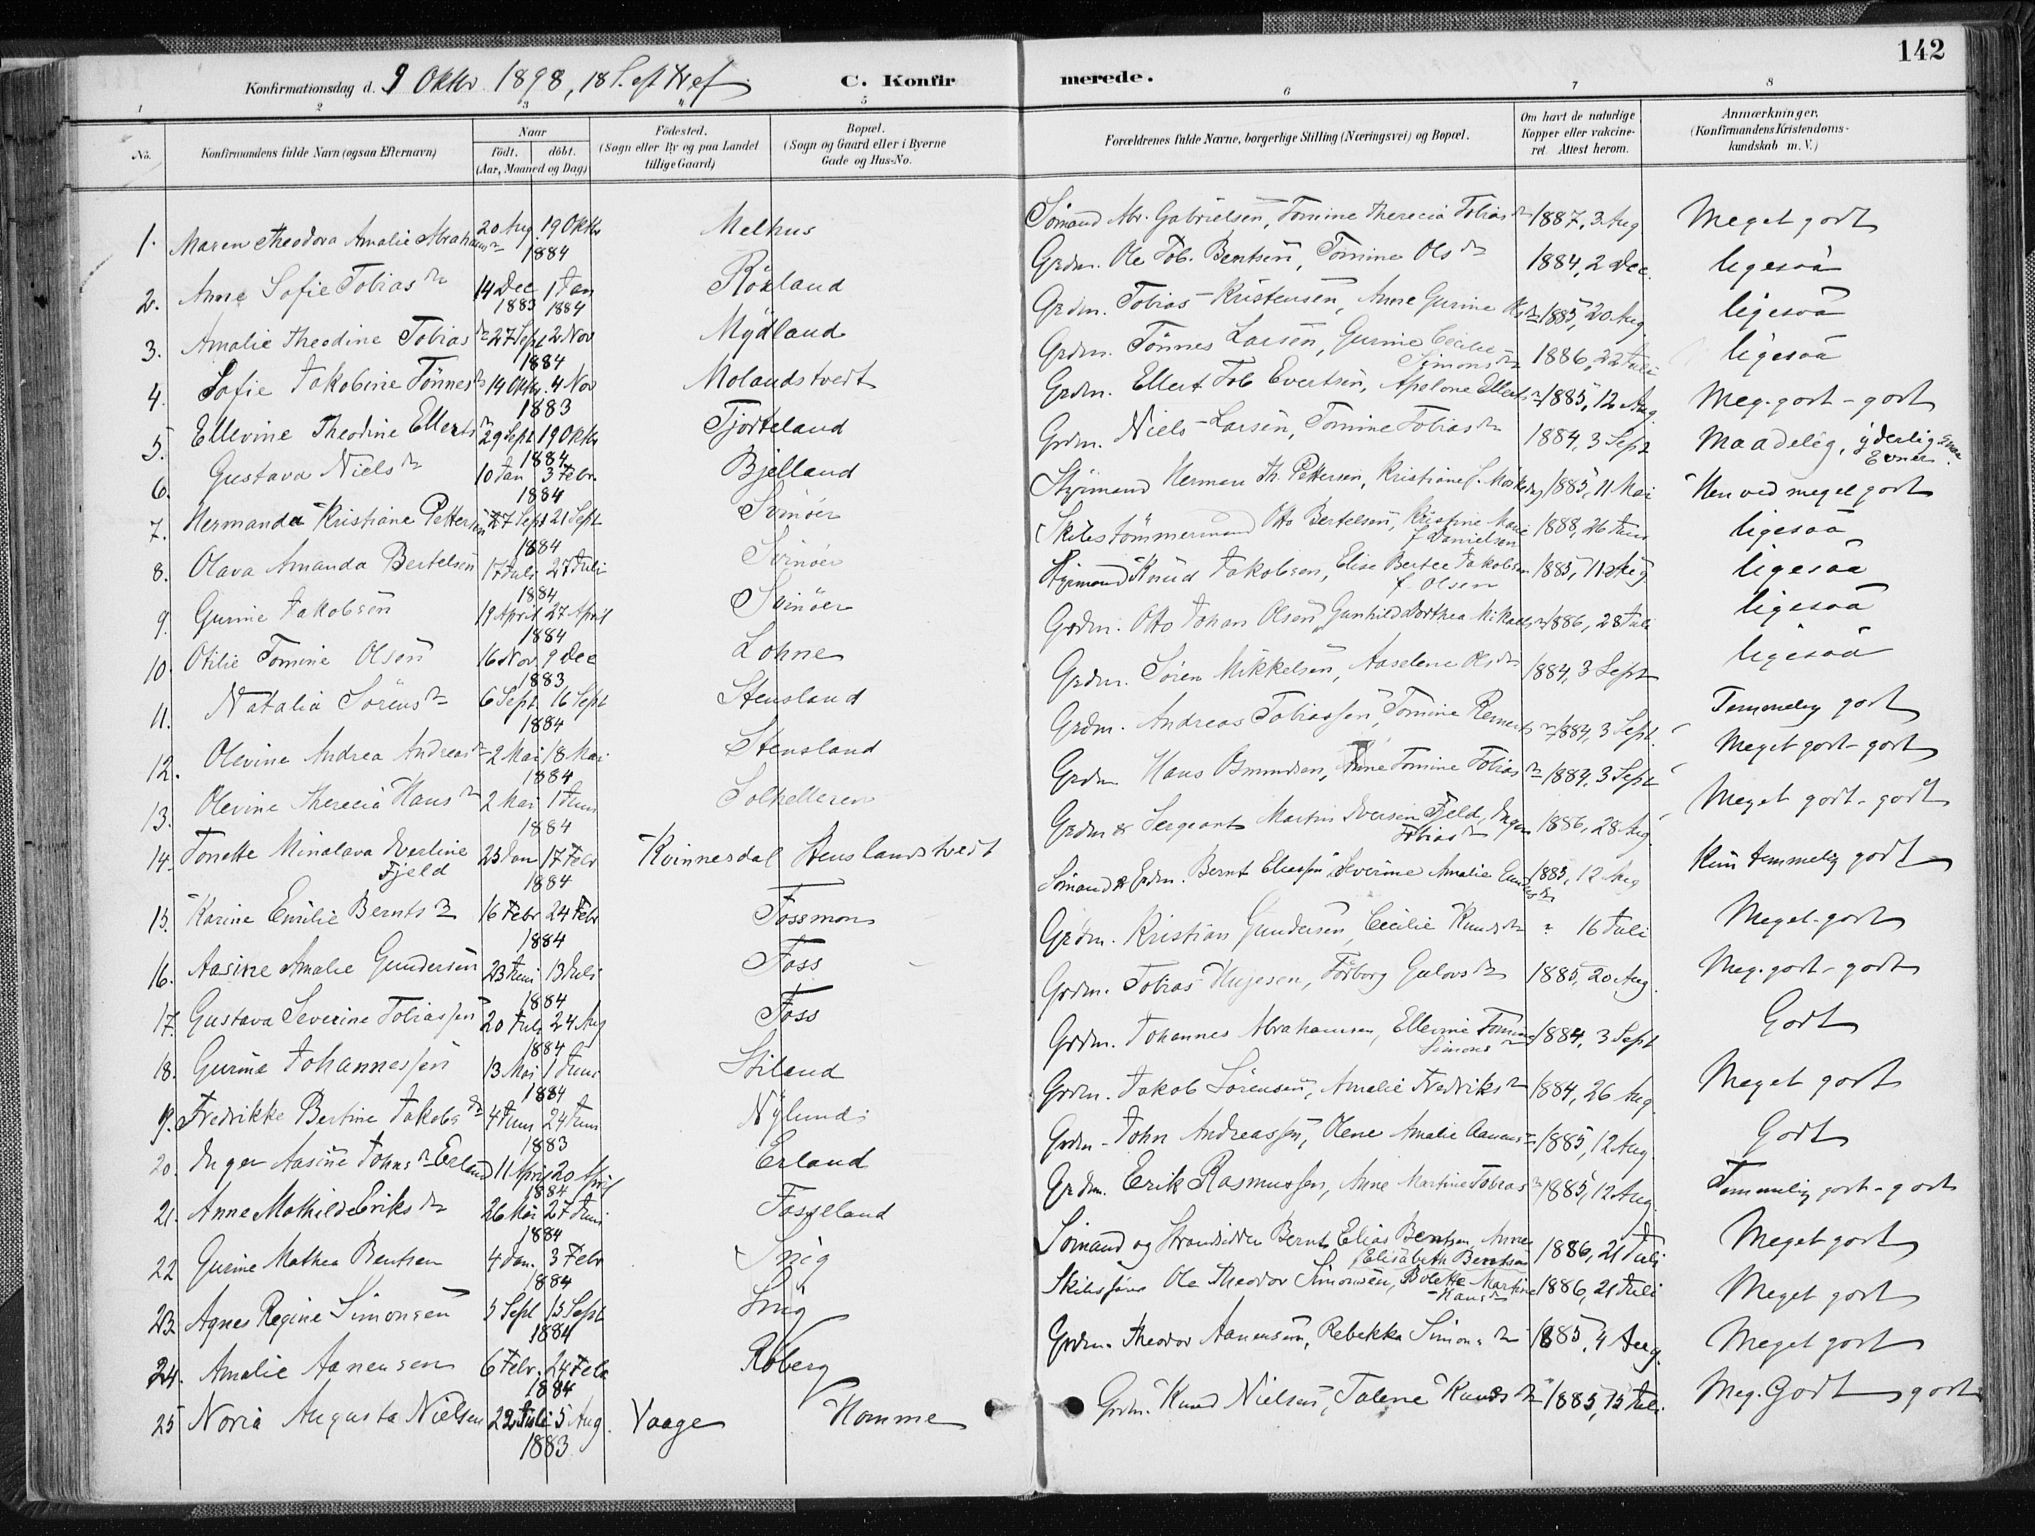 142
Konfirmationsdag d. 9 Oktbr 1898, 18 S. eft Tref. C. Konfirmerede.
1 2 3 4 5 6 7 8
No. Konfirmandens fulde Navn (ogsaa Efternavn) Naar født. døbt. (Aar, Maaned og Dag) Fødested. (Sogn eller By og paa Landet tillige Gaard) Bopæl. (Sogn og Gaard eller i Byerne Gade og Hus-No. Forældrenes fulde Navne, borgerlige Stilling (Næringsvei) og Bopæl. Om havt de naturlige Kopper eller vakcineret. Attest herom. Anmærkninger. (Konfirmandens Kristendomskundskab m. V.)
1. Maren Theodora Amalie Abrahamsdr 20 Aug 19 Oktbr 1884 Melhus Sömand Abr. Gabrielsen, Tomine Therecia Tobiasdr 1887, 3 Aug Meget godt
2. Anne Sofie Tobiasdr 14 Dec 1883 1 Jan 1884 Röxland Grdm. Ole Tob. Bentsen, Tomine Olsdr 1884, 2 Dec. ligesaa
3. Amalie Theodine Tobiasdr 27 Sept 2 Nov 1884 Mydland Grdm. Tobias Kristensen, Anne Gurine 1885, 20 Aug ligesaa
4. Sofie Jakobine Tönnesdr 14 Oktbr. 4 Nov 1883 Molandstvedt Grdm. Tönnes Larsen, Gurine Cecilie Simonsdr 1886, 22 Juli ligesaa
5. Ellevine Theodine Ellertsdr 29 Sept 19 Oktbr 1884 Tjorteland Grdm. Ellert Tob Evertsen, Apolone Ellertsdr 1885, 12 Aug. Meg. godt - godt
6. Gustava Nielsdr 10 Jan 3 Febr. 1884 Bjelland Grdm. Niels Larsen, Tomine Tobiasdr 1884, 3 Sept Maadelig, yderlig smaa Evner.
7. Hermanda Kristiane Pettersen 27 Sept 21 Sept 1884 Svinöer Styrmand Herman Th. Pettersen, Kristiane f. 1885, 11 Mai Hen ved meget godt
8. Olava Amanda Bertelsen 17 Juli 27 Juli 1884 Svinöer Skibstömmermand Otto Bertelsen, Kristine Marie f. Danielsen 1888, 26 Juni ligesaa
9. Gurine Jakobsen 19 April 27 April 1884 Svinöer Styrmand Knud Jakobsen, Elise Bertee Jakobsen f. Olsen 1885, 11 Aug ligesaa
10. Otilie Tomine Olsen 16 Nov 9 Dec 1883 Lohne Grdm. Otto Johan Olsen, Gunhild Dorthea Mikaelsdr 1886, 28 Juli ligesaa
11. Natalia Sörensdr 6 Sept 16 Sept 1884 Stensland Grdm. Sören Mikkelsen, Aaselene Olsdr 1884, 3 Sept ligesaa
12. Olevine Andrea Andreasdr 2 Mai 18 Mai 1884 Stensland Grdm. Andreas Tobiassen, Tomine 1884, 3 Sept. Temmelig godt
13. Olevine Therecia Hansdr 2 Mai 1 Juni 1884 Solhelleren Grdm Hans Omundsen, Anne Tomine Tobiasdr 1884, 3 Sept Meget godt - godt
14. Tonette Minalava Iverline Fjeld 25 Jan 17 Febr 1884 Kvinnesdal Stenslandstvedt Grdm & Sergeant Martin Iversen Fjeld, Inger Tobiasdr 1886, 28 Aug. Meget godt - godt
15. Karine Emilie Berntsdr 16 Febr 24 Febr 1884 Fossmon Sömand & Grdm. Bernt Eliassen, Severine Amalie 1885, 12 Aug Kun temmelig godt
16. Aasine Amalie Gundersen 23 Juni 13 Juli 1884 Foss Grdm. Kristian Gundersen, Cecilie Knudsdr " 16 Juli Meget godt
17. Gustava Severine Tobiassen 20 Juli 24 Aug 1884 Foss Grdm. Tobias Hujesen, Tørborg Gulovsdr 1885, 20 Aug. Meg. godt - godt
18. Gurine Johannessen 13 Mai 1 Juni 1884 Stiland Grdm. Johannes Abrahamsen, Ellevine Tomine Simonsdr 1884, 3 Sept Godt
19. Fredrikke Bertine Jakobsdr 4 Juni 24 Juni 1883 Nylund Grdm. Jakob Sörensen, Amalie Fredriksdr 1884, 26 Aug. Meget godt
20. Inger Aasine Johnsdr Erland 11 April 20 April 1884 Erland Grdm. John Andreassen, Olene Amalie Aanensdr 1885, 12 Aug. Godt
21. Anne Mathilde Eriksdr 26 Mai 27 Juni 1884 Fosseland Grdm. Erik Rasmussen, Anne Martine Tobiasdr 1885, 12 Aug. Temmelig godt - godt
22 Gurine Mathea Bentsen 4 Jan. 3 Febr 1884 Snig Sömand og Strandsidder Bernt Elias Bentsen, Anne Elisabeth Bentsen 1886, 21 Juli Meget godt
23 Agnes Regine Simonsen 5 Sept 15 Sept 1884 Snig Skibsförer Ole Theodor Simonsen, Bolette Martine Hansdr 1886, 21 Juli Meget godt
24. Amalie Aanensen 6 Febr. 24 Febr 1884 Roberg Grdm. Theodor Aanensen, Rebekka Simonsdr 1885, 4 Aug. Meget godt
25 Noria Augusta Nielsen 22 Juli 5 Aug. 1883 Vaage Homme Grdm. Knud Nielsen, Talene Knudsdr 1885, 15 Juli Meg. Godt godt